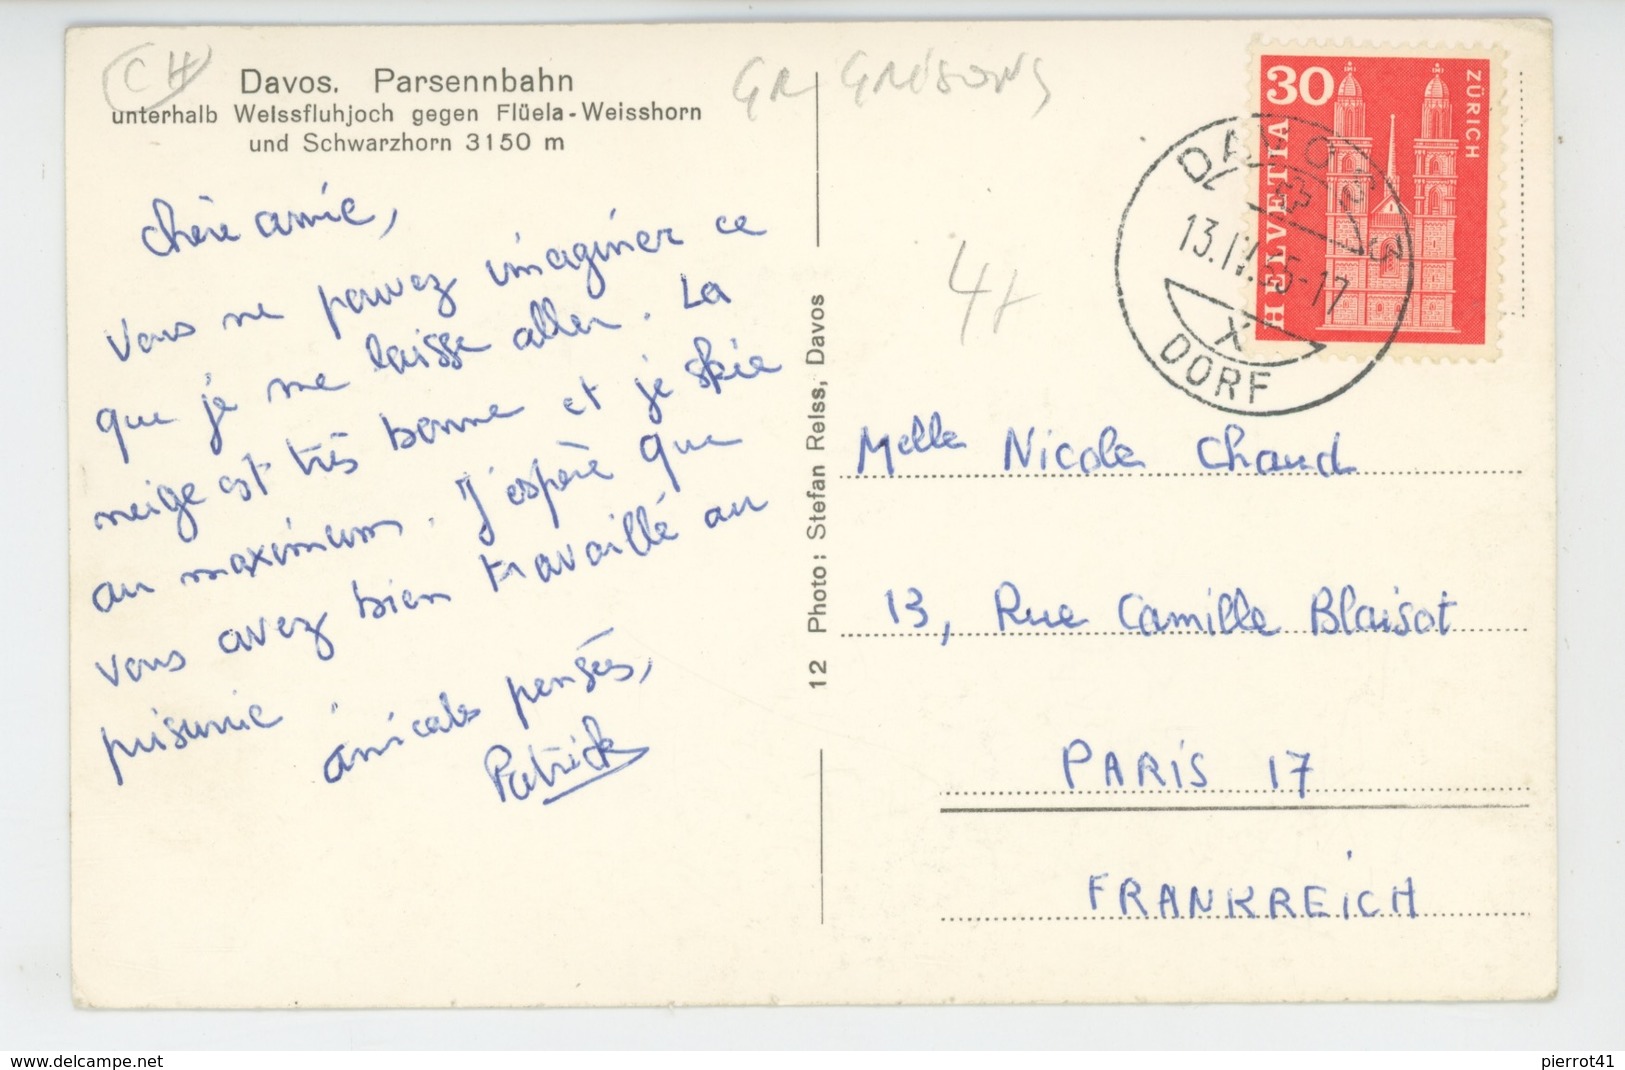 CH
Davos. Parsennbahn
unterhalb Weissfluhjoch gegen Flüela-Weisshorn
und Schwarzhorn 3150 m
GR GRISONS
Chère amie,
Vous ne pouvez imaginer ce
que je me laisse aller. La
neige est très bonne et je skie
au maximum. J'espère que
vous avez bien travaillé au
prisunic
amicales pensées,
Patrick
12 Photo: Stefan Reiss, Davos
30
HELVETIA
ZÜRICH
DAVOS
13.IV.65-17
X
DORF
Melle Nicole Chaud
13, Rue Camille Blaisot
PARIS 17
FRANKREICH
www.delcampe.net
pierrot41